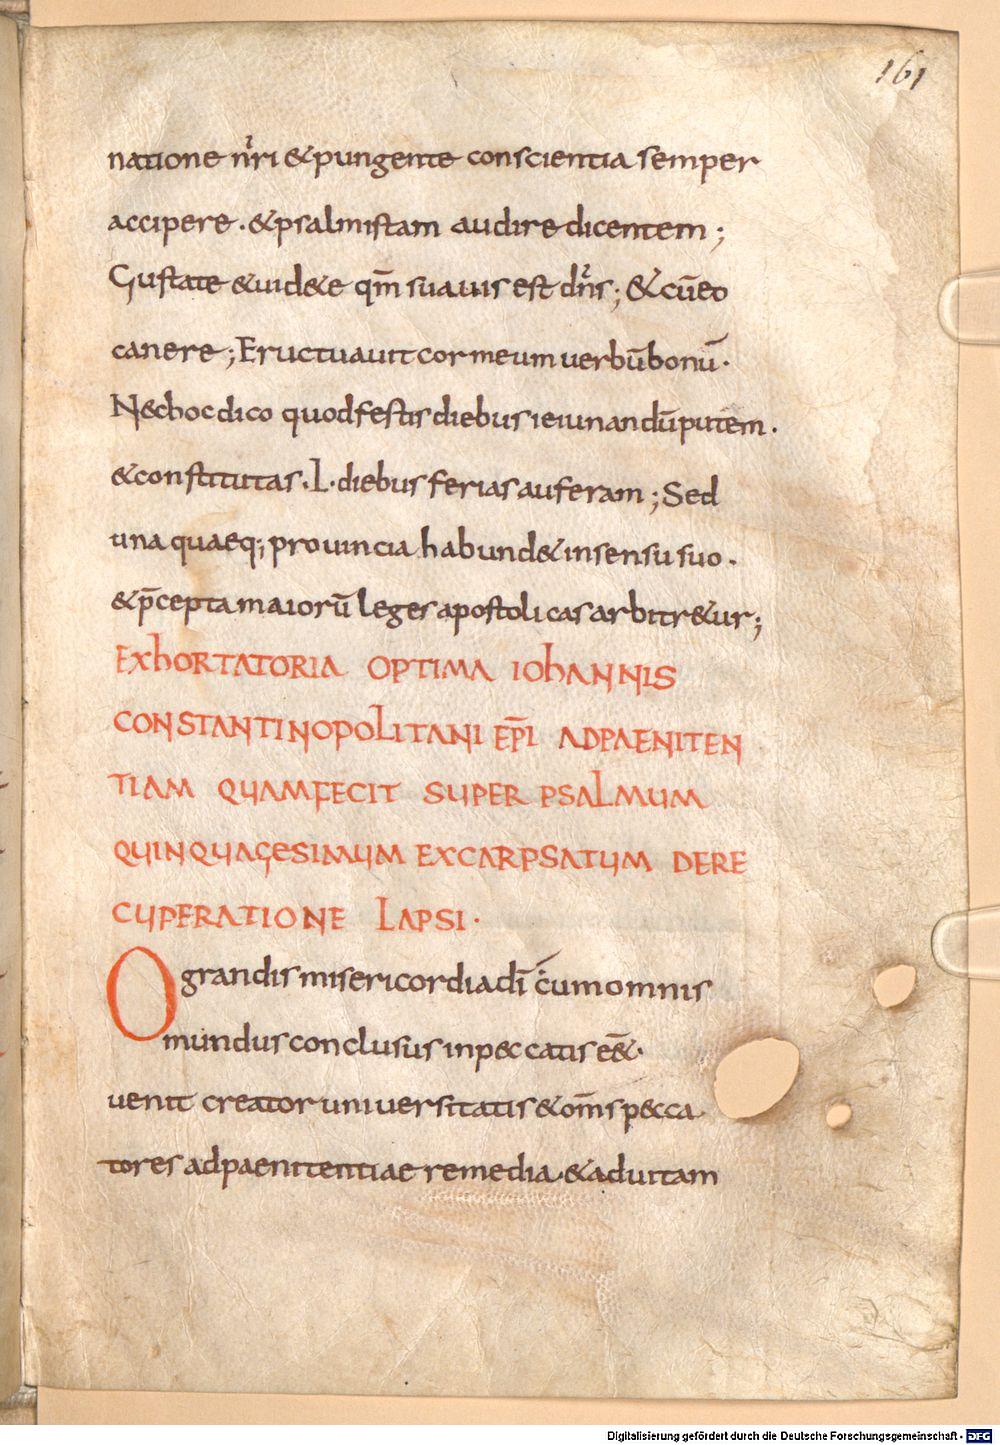 161
natione nr̄i & pungente conscientia semper
accipere . & psalmistam audire dicentem ;
Gustate & uid&e qm̄ suauis est dn̄s ; & cū eo
canere ; Eructuauit cor meum uerbū bonū .
Nec hoc dico quod festis diebus ieiunandū putem .
& constitutas . L . diebus ferias auferam ; Sed
una quaeq; prouincia habund& in sensu suo .
& p̄cepta maiorū leges apostolicas arbitr&ur ;
EXHORTATORIA OPTIMA IOHANNIS
CONSTANTINOPOLITANI EP̄I AD PAENITEN
TIAM QUAM FECIT SUPER PSALMUM
QUINQUAGESIMUM EXCARPSATUM DE RE
CUPERATIONE LAPSI .
O grandis misericordia dī cum omnis
mundus conclusus in peccatis eēt .
uenit creator uniuersitatis & om̄s pecca
tores ad paenitentiae remedia . & ad uitam
Digitalisierung gefördert durch die Deutsche Forschungsgemeinschaft - DFG